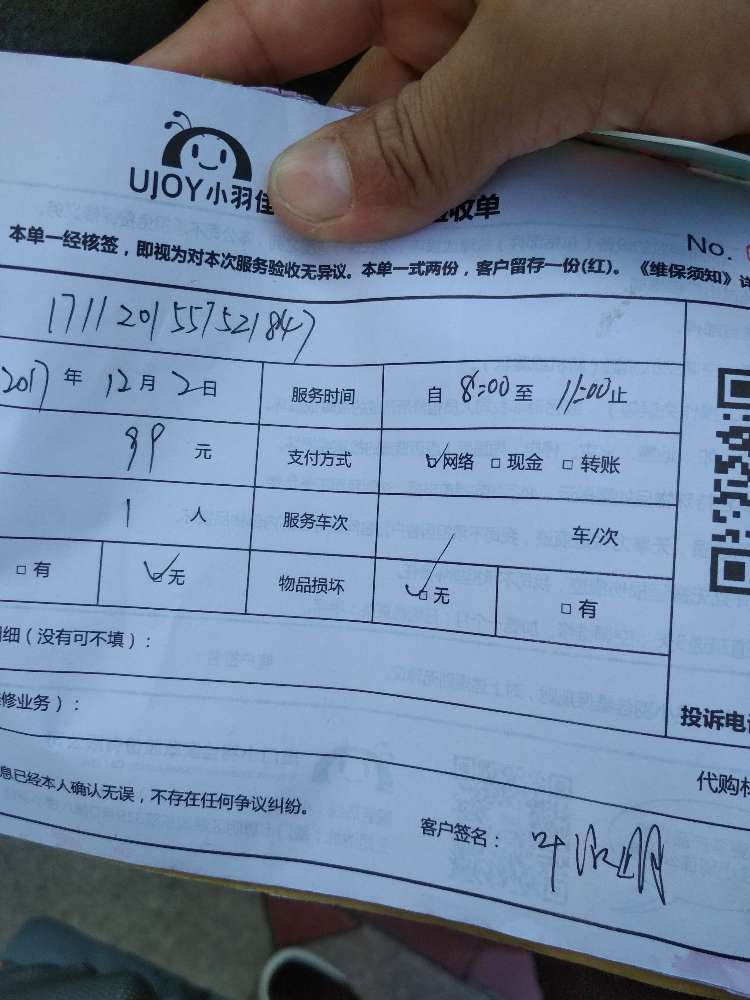 UJOY小羽佳
验收单
No.
本单一经核签，即视为对本次服务验收无异议。本单一式两份，客户留存一份(红)。《维保须知》详
1711201557521847
2017年12月2日 服务时间 自8:00至11:00止
99元 支付方式 ☑网络 □现金 □转账
1人 服务车次 车/次
□有 ☑无 物品损坏 ☑无 □有
细（没有可不填）：
修业务）：
投诉电话
代购材
息已经本人确认无误，不存在任何争议纠纷。
客户签名：